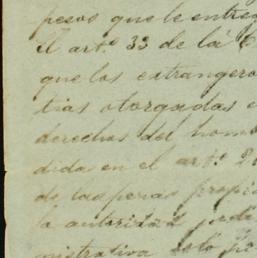 pesos que le entreg
El artº 33 de la C
que los extrangero
tias otorgadas e
derechos del hom
dida en el artº 2
de las penas propi
la autoridad
nistrativa solo